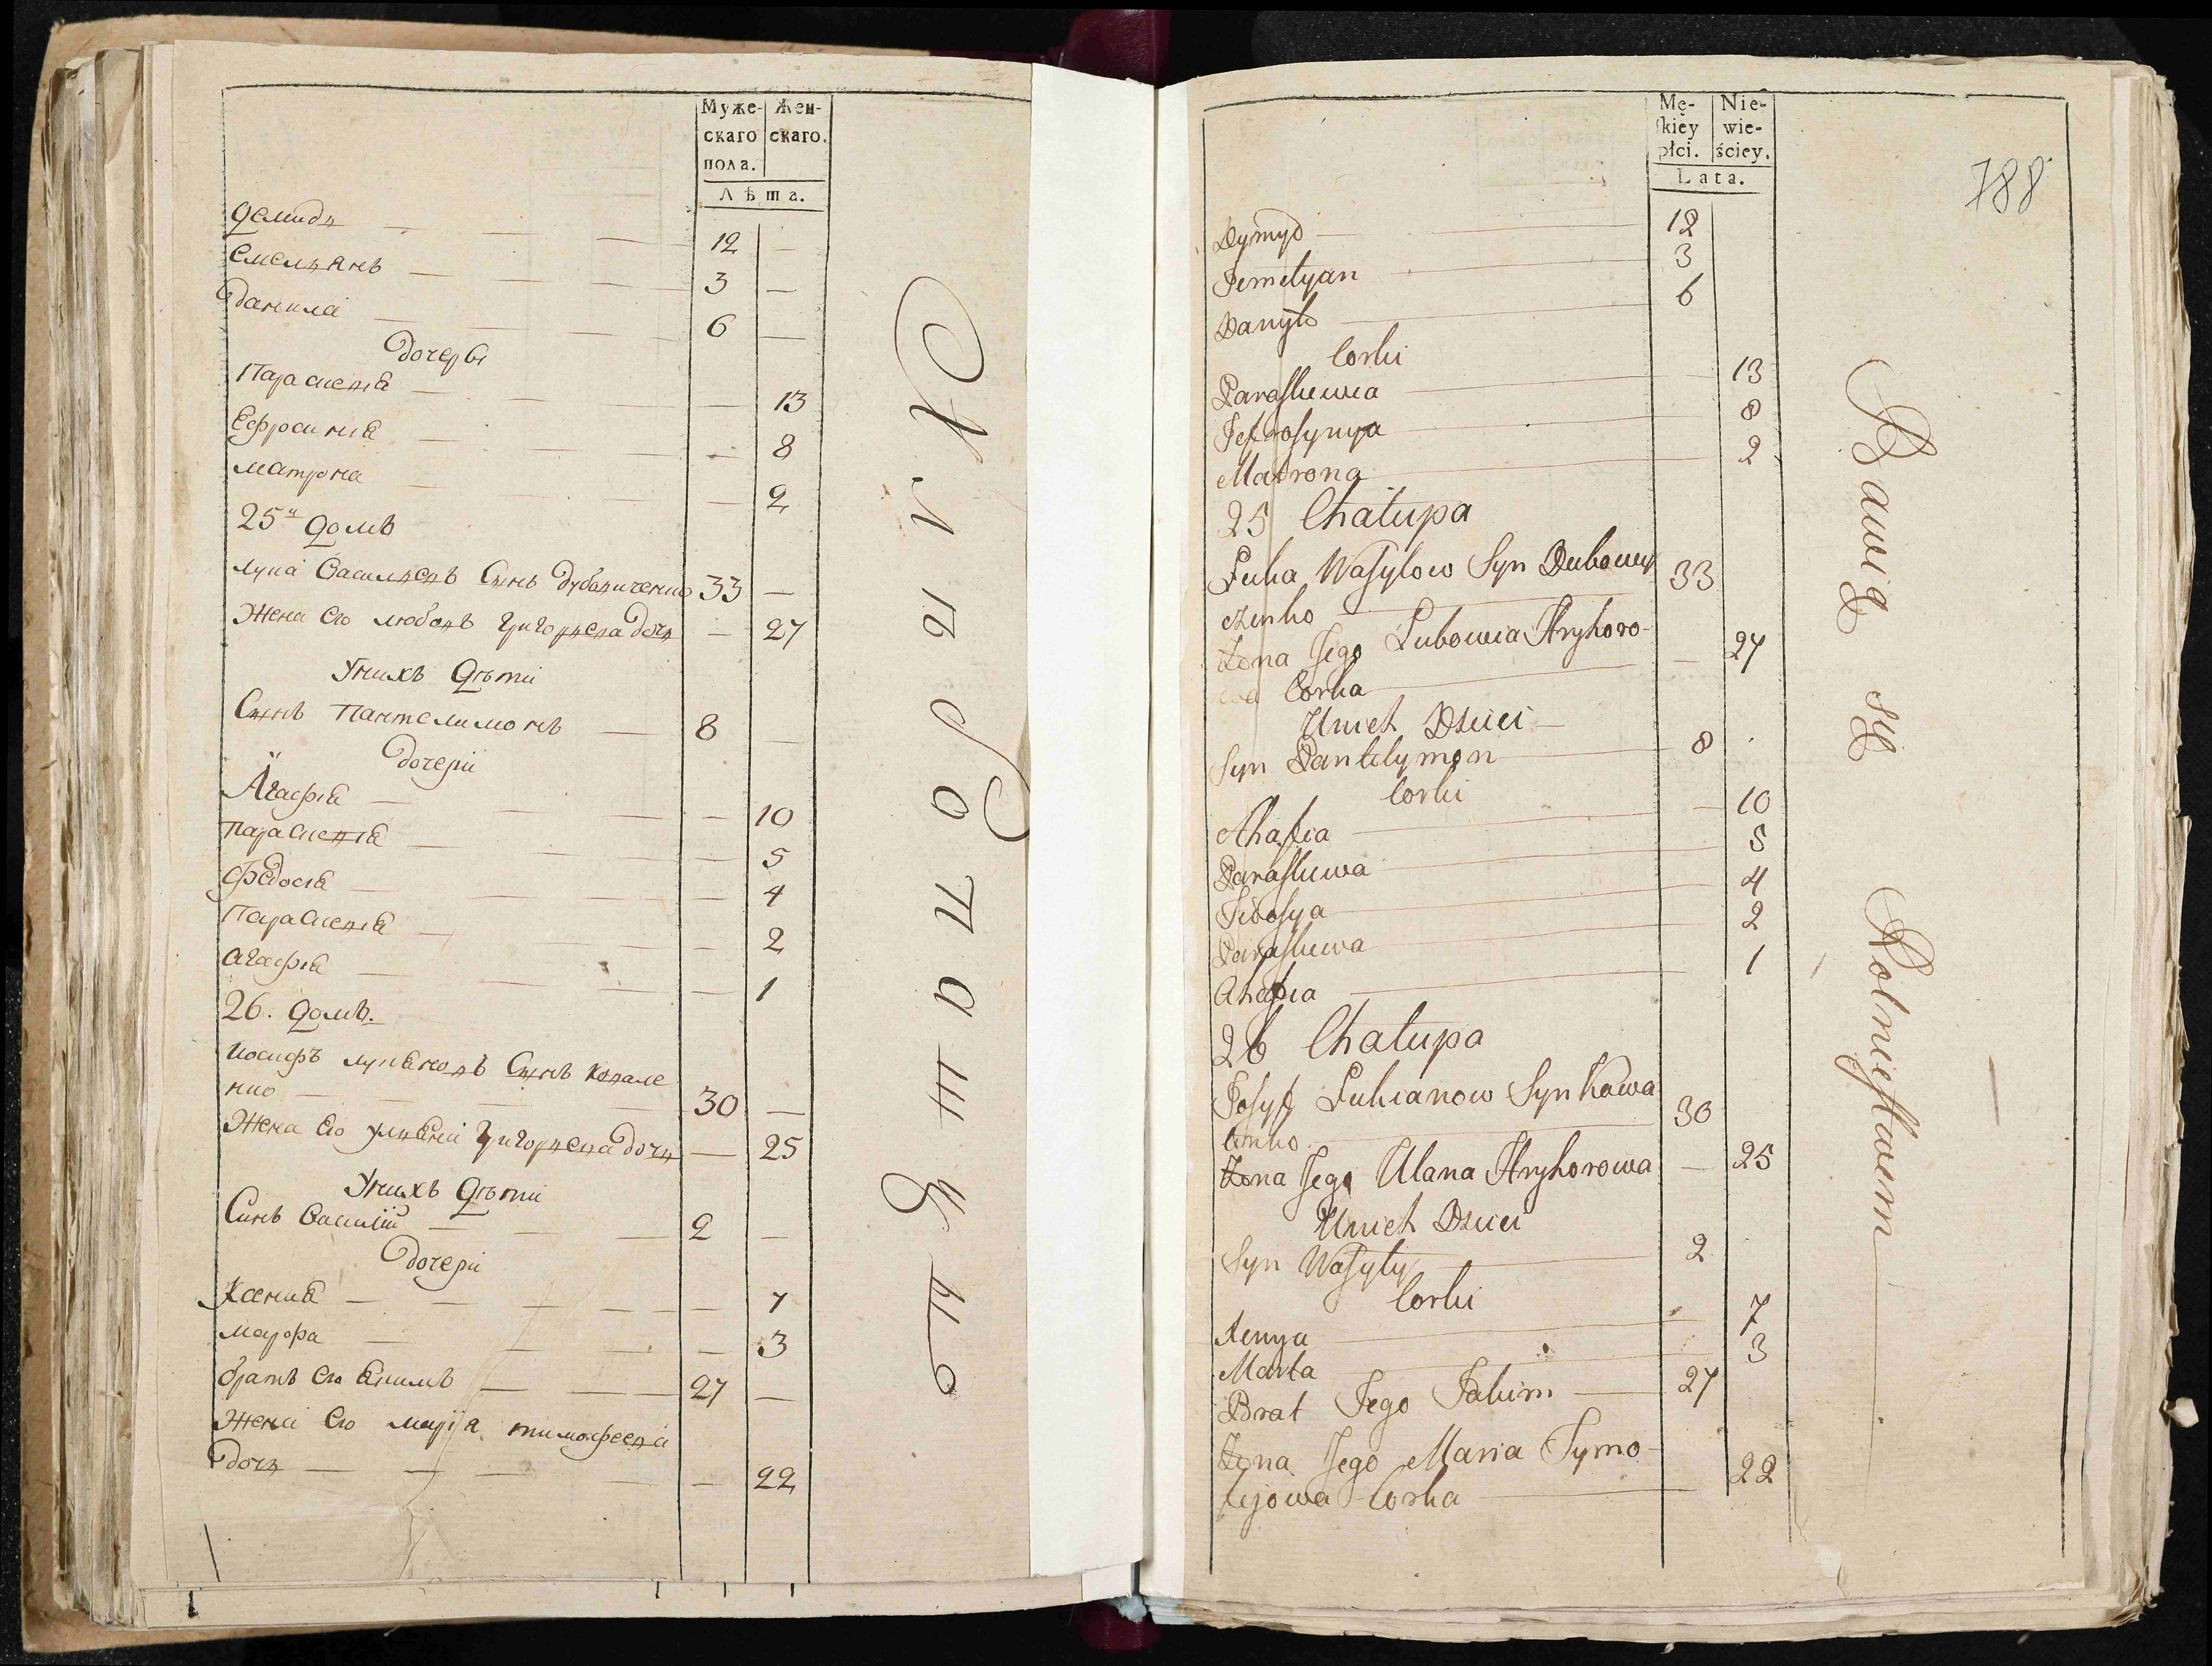 Муже- Жен-
скаго скаго.
пола.
Лѣта.
Демидъ — 12 —
Емельянъ — 3 —
Данила — 6 —
Дочери
Параскевия — 13
Ефросиния — 8
Матрона — 2
25й Домъ
Лука Васильевъ Сынъ Дубовиченко 33 —
Жена Его Любовъ Григорьева Дочь — 27
Унихъ Дѣти
Сынъ Пантелимонъ — 8 —
Дочери
Агафия — 10
Параскевия — 5
Федосия — 4
Параскевия — 2
Агафия — 1
26. Домъ.
Иосифъ Лукяновъ Сынъ Ковале
нко — 30 —
Жена Его Ульяна Григорьева Дочь — 25
Унихъ Дѣти
Синъ Василий — 2 —
Дочери
Ксения — 7
Марфа — 3
Братъ Его Якимъ — 27 —
Жена Его Мария Тимофеева
Дочь — 22
Mę- Nie-
skiéy wie-
płci. ściey.
Lata.
788
Dymyd — 12
Jemelyan — 3
Danyło — 6
Corki
Paraskiewia — 13
Jefrosynya — 8
Matrona — 2
25 Chałupa
Łuka Wasylow Syn Dubowy 33
czenko —
Żona Jego Lubowia Hryhoro- — 27
wa Corka
Unich Dzieci —
Syn Pantelymon — 8
Corki
Ahafia — 10
Paraskiewa — 5
Fedosya — 4
Paraskiewa — 2
Ahafia — 1
26 Chałupa
Josyf Łukianow Syn Kowa 30
lenko
Żona Jego Ulana Hryhorowa — 25
Unich Dzieci
Syn Wasyly — 2
Corki
Xenya — 7
Marta — 3
Brat Jego Jakim — 27
Żona Jego Maria Tymo-
fiejowa Corka — 22
Bawią się Rolnictwem